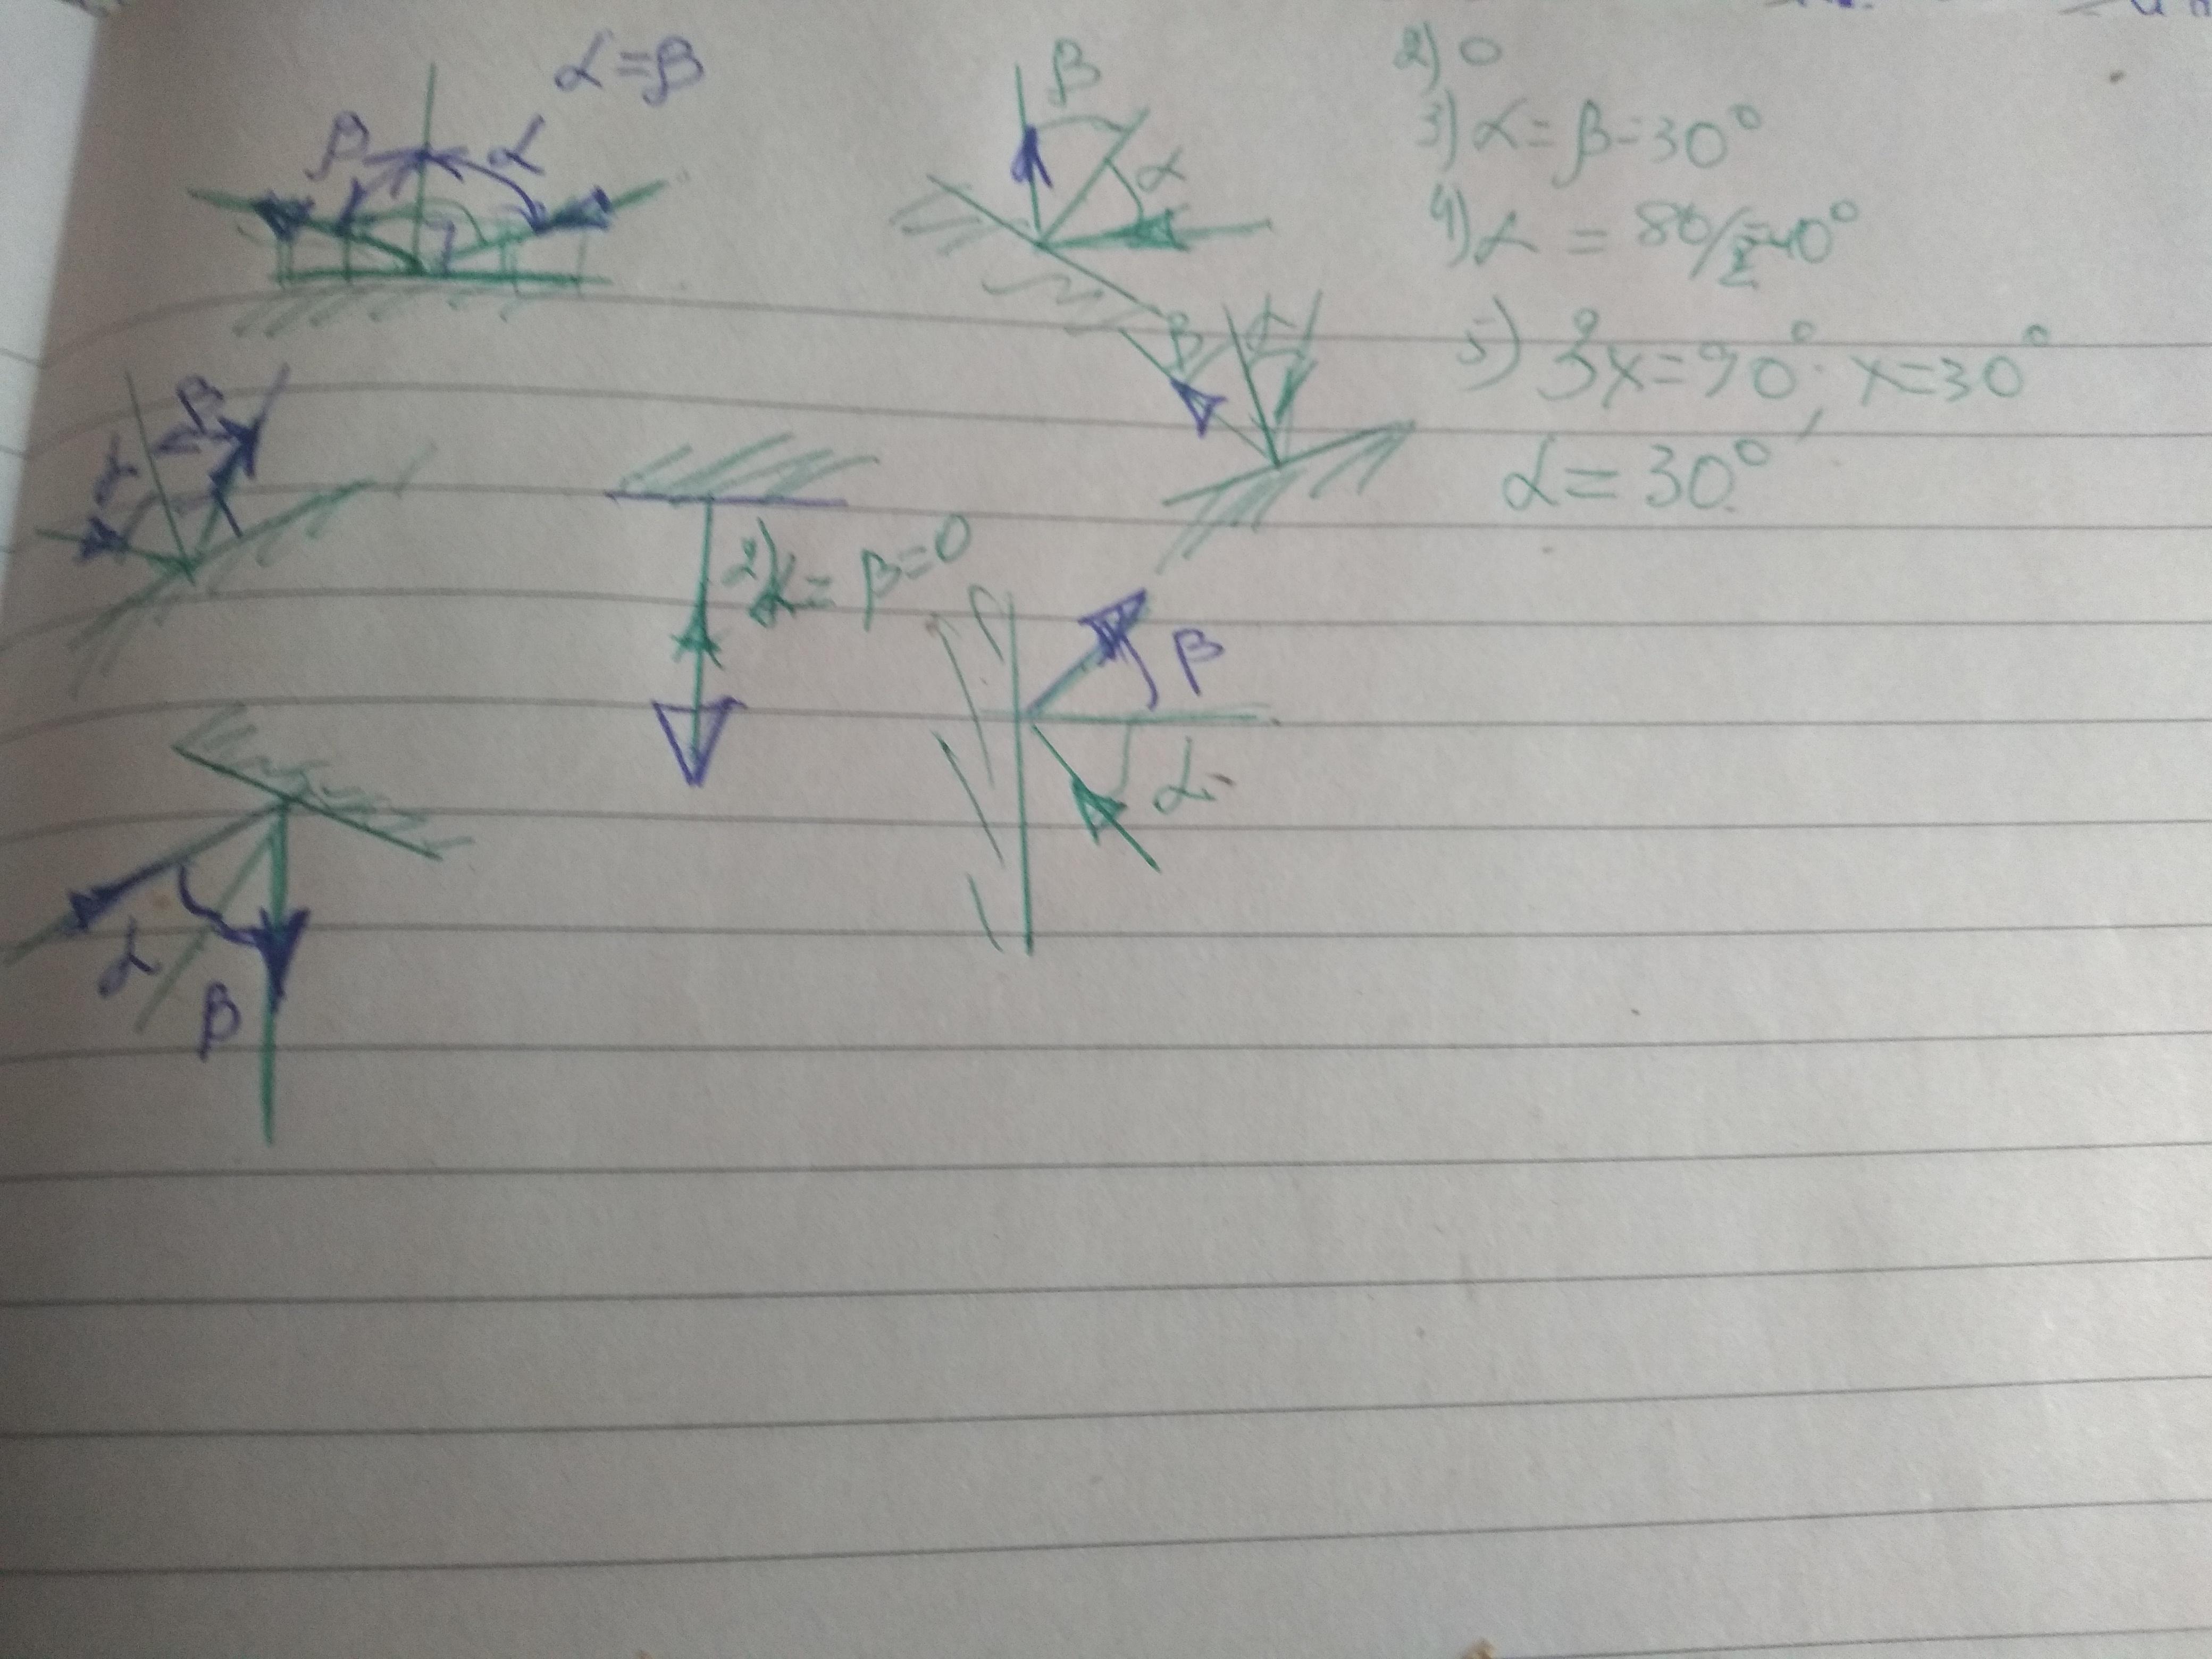 α=β
β α
β
α
2) 0
3) α=β=30°
4) α = 80/2=40°
5) 3x=90°; x=30°
α=30°
β α
α β
2) α=β=0
β
α
α
β